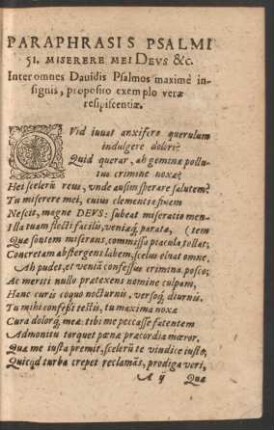 PARAPHRASIS PSALMI
51. MISERERE MEI DEVS &c.
Inter omnes Dauidis Psalmos maximè in-
signis, proposito exemplo veræ
resipiscentiæ.
QVid iuuat anxiferæ querulum
indulgere dolori?
Quid querar, ab geminæ pollu-
tus crimine noxæ?
Hei scelerũ reus, vnde ausim sperare salutem?
Tu miserere mei, cuius clementia finem
Nescit, magne DEVS: subeat miseratio men-
Illa tuam flecti facilis, veniaq́; parata, (tem
Quæ sontem miserans, commissa piacula tollat;
Concretam abstergens labem, scelus eluat omne.
Ah pudet, et veniã confessus crimina posco;
Ac meriti nullo prætexens nomine culpam,
Hanc curis coquo nocturnis, versoq́; diurnis.
Tu mihi confessi testis, tu maxima noxæ
Cura doloq́; meæ: tibi me peccasse fatentem
Admonitu torquet pœnæ præcordia mœror.
Quæ me iusta premit, scelerũ te vindice iusto,
Quicqd turba crepet reclamãs, prodiga veri,
A ij Quæ